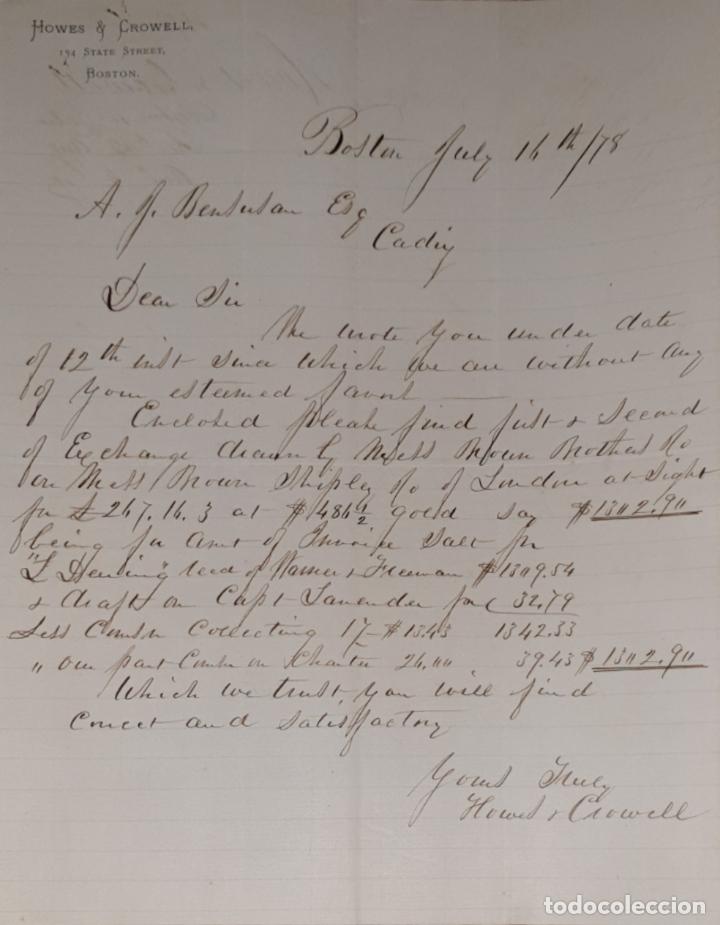 HOWES & CROWELL,
194 STATE STREET,
BOSTON.
Boston July 16th/78
A. J. Bensusan Esq
Cadiz
Dear Sir
We wrote you under date
of 12th inst since which we are without any
of your esteemed favors
Enclosed please find first & second
of Exchange drawn by Mess Brown Brothers & Co
on Mess Brown Shipley & Co of London at sight
for £ 267.16.3 at $ 486 1/2 gold say $ 1302.90
being for Amt of Invoice Salt pr
"L Deering" recd of Warner & Freeman $ 1309.54
& draft on Capt Lavender for 32.79
Less Comsn Collecting 1% $13.43 1342.33
" our part Comsn on Charter 26.00 39.43 $ 1302.90
Which we trust you will find
Correct and satisfactory
Yours Truly
Howes & Crowell
todocoleccion.net